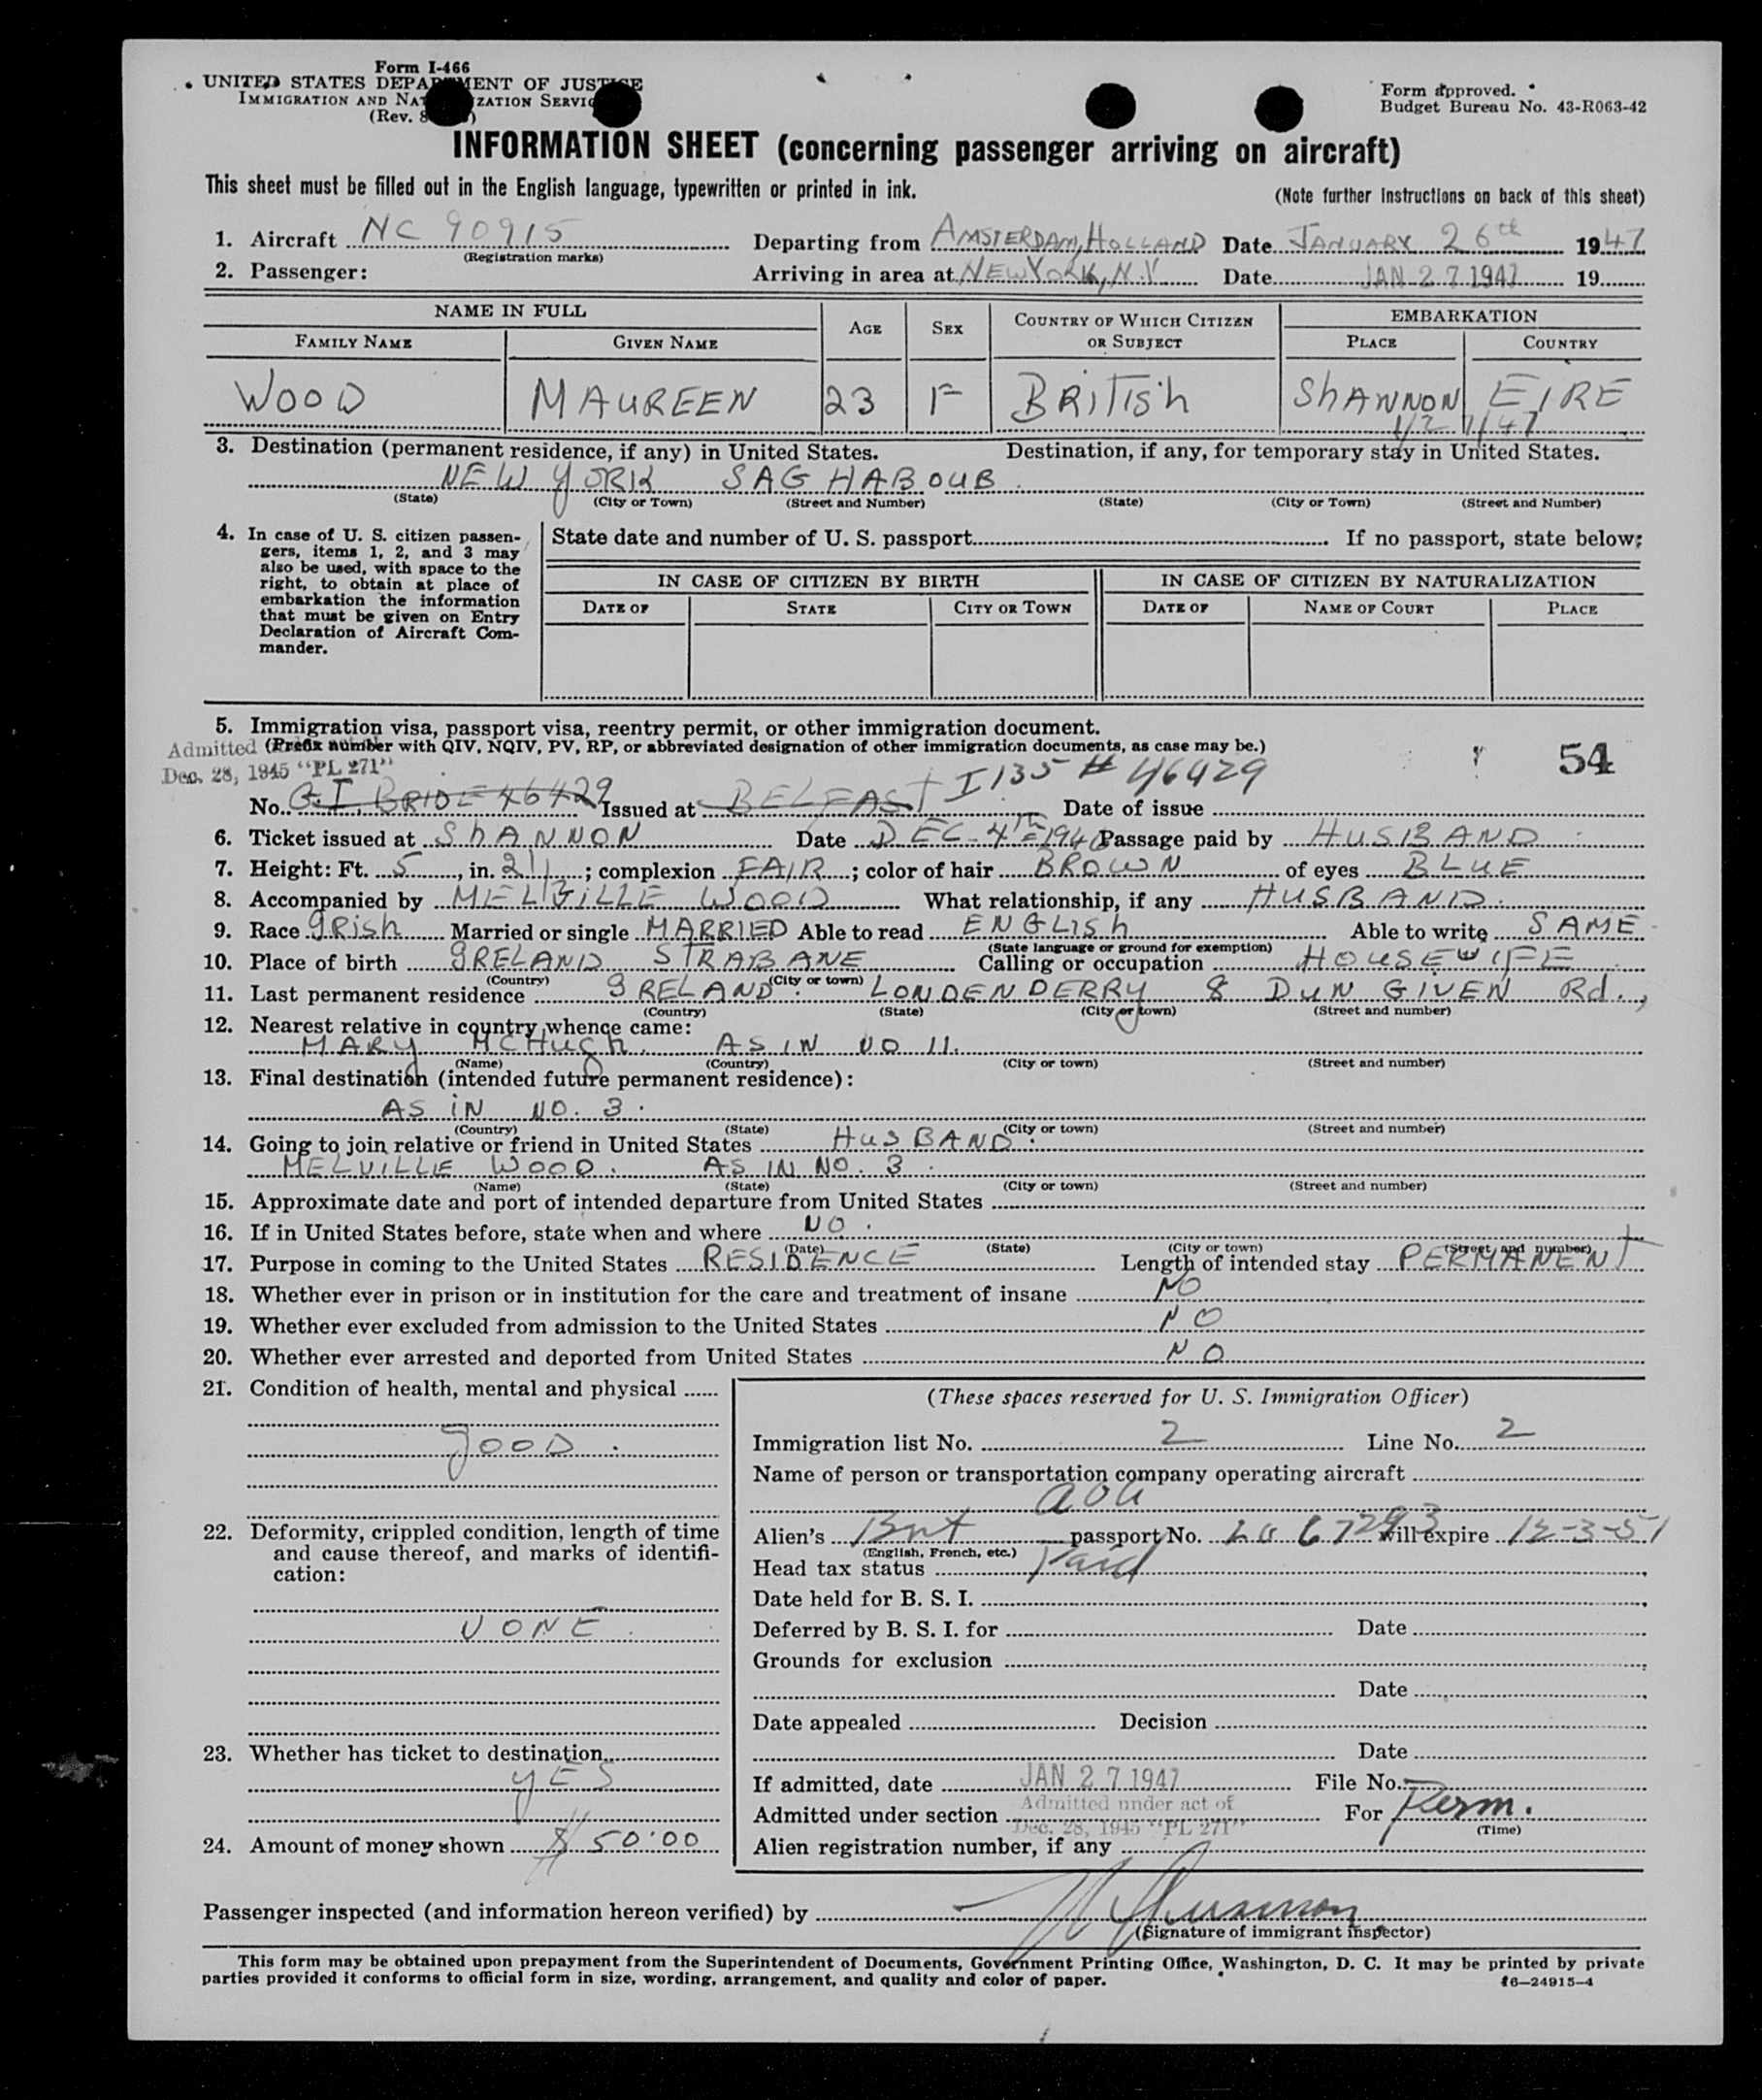 Form I-466
UNITED STATES DEPARTMENT OF JUSTICE
IMMIGRATION AND NATURALIZATION SERVICE
(Rev. 8
Form approved.
Budget Bureau No. 43-R063-42
INFORMATION SHEET (concerning passenger arriving on aircraft)
This sheet must be filled out in the English language, typewritten or printed in ink.
(Note further instructions on back of this sheet)
1. Aircraft NC 90915 Departing from AMSTERDAM, HOLLAND Date JANUARY 26th 1947
(Registration marks)
2. Passenger: Arriving in area at NEW YORK, N.Y. Date JAN 27 1947 19
NAME IN FULL AGE SEX COUNTRY OF WHICH CITIZEN OR SUBJECT EMBARKATION
FAMILY NAME GIVEN NAME PLACE COUNTRY
WOOD MAUREEN 23 F BRITISH SHANNON EIRE
3. Destination (permanent residence, if any) in United States. Destination, if any, for temporary stay in United States.
NEW YORK SAG HABOUB
(State) (City or Town) (Street and Number) (State) (City or Town) (Street and Number)
4. In case of U. S. citizen passen-
gers, items 1, 2, and 3 may
also be used, with space to the
right, to obtain at place of
embarkation the information
that must be given on Entry
Declaration of Aircraft Com-
mander.
State date and number of U. S. passport If no passport, state below:
IN CASE OF CITIZEN BY BIRTH IN CASE OF CITIZEN BY NATURALIZATION
DATE OF STATE CITY OR TOWN DATE OF NAME OF COURT PLACE
5. Immigration visa, passport visa, reentry permit, or other immigration document.
Admitted (Prefix number with QIV, NQIV, PV, RP, or abbreviated designation of other immigration documents, as case may be.)
54
Dec. 28, 1945 "PL 271"
I 135 # 46429
No. G.I. BRIDE 46429 Issued at BELFAST Date of issue
6. Ticket issued at SHANNON Date DEC. 4th 1946 Passage paid by HUSBAND
7. Height: Ft. 5, in. 2½; complexion FAIR; color of hair BROWN of eyes BLUE
8. Accompanied by MELVILLE WOOD What relationship, if any HUSBAND.
9. Race IRISH Married or single MARRIED Able to read ENGLISH Able to write SAME
(State language or ground for exemption)
10. Place of birth IRELAND STRABANE Calling or occupation HOUSEWIFE
(Country) (City or town)
11. Last permanent residence IRELAND. LONDENDERRY 8 DUN GIVEN Rd.,
(Country) (State) (City or town) (Street and number)
12. Nearest relative in country whence came:
MARY MCHUGH. AS IN NO 11.
(Name) (Country) (City or town) (Street and number)
13. Final destination (intended future permanent residence):
AS IN NO. 3.
(Country) (State) (City or town) (Street and number)
14. Going to join relative or friend in United States HUSBAND.
MELVILLE WOOD. AS IN NO. 3.
(Name) (State) (City or town) (Street and number)
15. Approximate date and port of intended departure from United States
16. If in United States before, state when and where NO.
(Date) (State) (City or town) (Street and number)
17. Purpose in coming to the United States RESIDENCE Length of intended stay PERMANENT
18. Whether ever in prison or in institution for the care and treatment of insane NO
19. Whether ever excluded from admission to the United States NO
20. Whether ever arrested and deported from United States NO
21. Condition of health, mental and physical
GOOD.
22. Deformity, crippled condition, length of time
and cause thereof, and marks of identifi-
cation:
NONE.
23. Whether has ticket to destination
YES
24. Amount of money shown $ 50.00
(These spaces reserved for U. S. Immigration Officer)
Immigration list No. 2 Line No. 2
Name of person or transportation company operating aircraft
aoa
Alien's Brit passport No. will expire 12-3-51
(English, French, etc.)
Head tax status Paid
Date held for B. S. I.
Deferred by B. S. I. for Date
Grounds for exclusion
Date
Date appealed Decision
Date
If admitted, date JAN 27 1947 File No.
Admitted under section Admitted under act of Dec. 28, 1945 "PL 271" For Perm.
(Time)
Alien registration number, if any
Passenger inspected (and information hereon verified) by
(Signature of immigrant inspector)
This form may be obtained upon prepayment from the Superintendent of Documents, Government Printing Office, Washington, D. C. It may be printed by private
parties provided it conforms to official form in size, wording, arrangement, and quality and color of paper.
16—24915-4